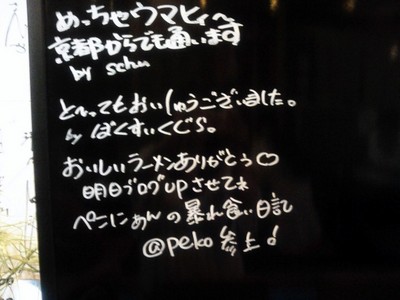 めっちゃウマヒィ〜
京都からでも通います
by schu
と〜ってもおいしゅうございました。
by ぼくすいくじら。
おいしいラーメンありがとう♡
明日ブログUPさせてね
ペこにゃんの暴れ食い日記
@peko 参上!